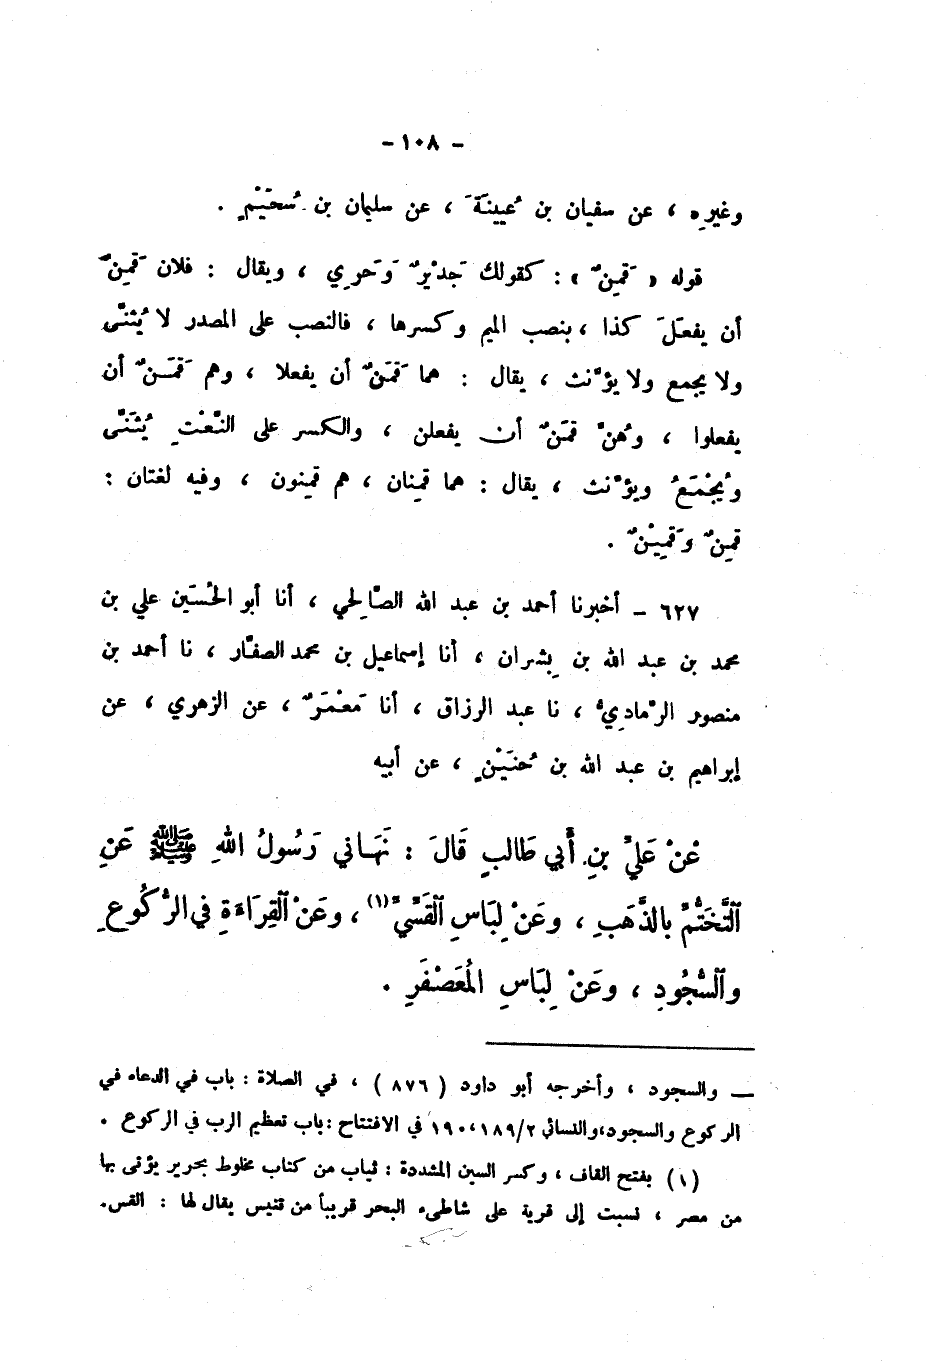 - ١٠٨ -
وغيرِه ، عن سفيان بن عُيينَةَ ، عن سليمان بن سُحَيْمٍ .
قوله « قَمِنٌ » : كقولك جَديْرٌ وَحَرِي ، ويقال : فلان قَمِنٌ
أن يفعَلَ كذا ، بنصب الميم وكسرها ، فالنصب على المصدر لا يُثنَّى
ولا يجمع ولا يؤنَّث ، يقال : هما قَمَنٌ أن يفعلا ، وهم قَمَنٌ أن
يفعلوا ، وهُنَّ قمَنٌ أن يفعلن ، والكسر على النَّعْتِ يُثَنَّى
ويُجْمَعُ ويؤنَّث ، يقال : هما قمِنان ، هم قمِنون ، وفيه لغتان :
قمِنٌ وقَمِيْنٌ .
٦٢٧ - أخبرنا أحمد بن عبد الله الصَّالِحي ، أنا أبو الحُسَين علي بن
محمد بن عبد الله بن بِشران ، أنا إسماعيل بن محمد الصفَّار ، نا أحمد بن
منصور الرَّمادِيُّ ، نا عبد الرزاق ، أنا مَعْمَرٌ ، عن الزهري ، عن
إبراهيم بن عبد الله بن حُنَيْنٍ ، عن أبيه
عْنْ عَليِّ بنِ أَبي طَالبٍ قَالَ : نَهَاني رَسُولُ اللهِ ﷺ عَنِ
ٱلتَّخَتُّمِ بالذَّهَبِ ، وعَنْ لِبَاسِ ٱلقَسِّيِّ (١) ، وعَنْ ٱلقِرَاءَةِ في الرُّكُوعِ
وٱلسُّجُودِ ، وعَنْ لِبَاسِ المُعَصْفَرِ .
ــ والسجود ، وأخرجه أبو داود ( ٨٧٦ ) ، في الصلاة : باب في الدعاء في
الركوع والسجود،والنسائي ١٨٩/٢،١٩٠ في الافتتاح :باب تعظيم الرب في الركوع .
(١) بفتح القاف ، وكسر السين المشددة : ثياب من كتاب مخلوط بحرير يؤتى بها
من مصر ، نسبت إلى قرية على شاطىء البحر قريباً من تنيس يقال لها : القس.